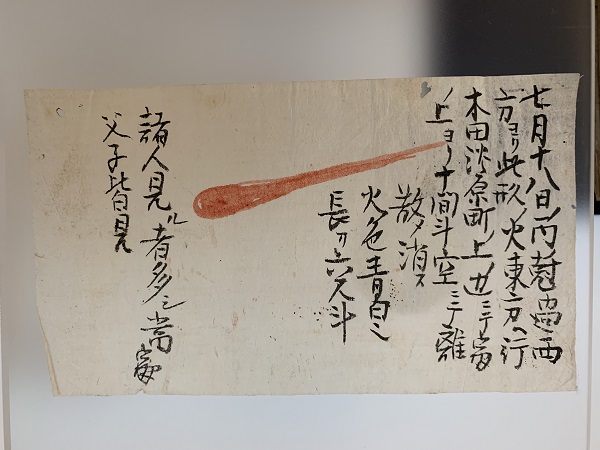 七月十八日ノ尅過西
方ヨリ此形ノ火東方ヘ行
木田淡原町上ノ辺ニテ
上ヨリ十間斗空ニテ離
散シ消ス
火色青白シ
長サ六尺斗
諸人見ル者多シ當
父子皆見